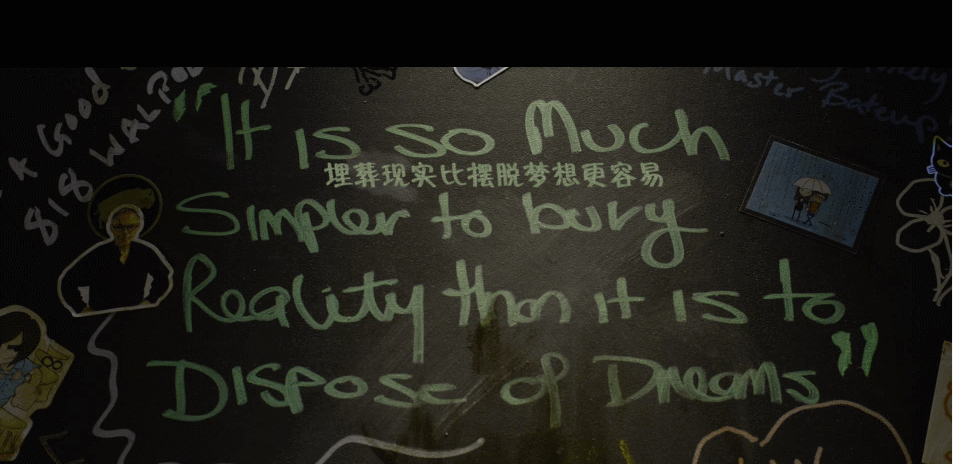 A Good
818 WALP
Master Bateup
"It is so Much
埋葬现实比摆脱梦想更容易
Simpler to bury
Reality than it is to
Dispose of Dreams"